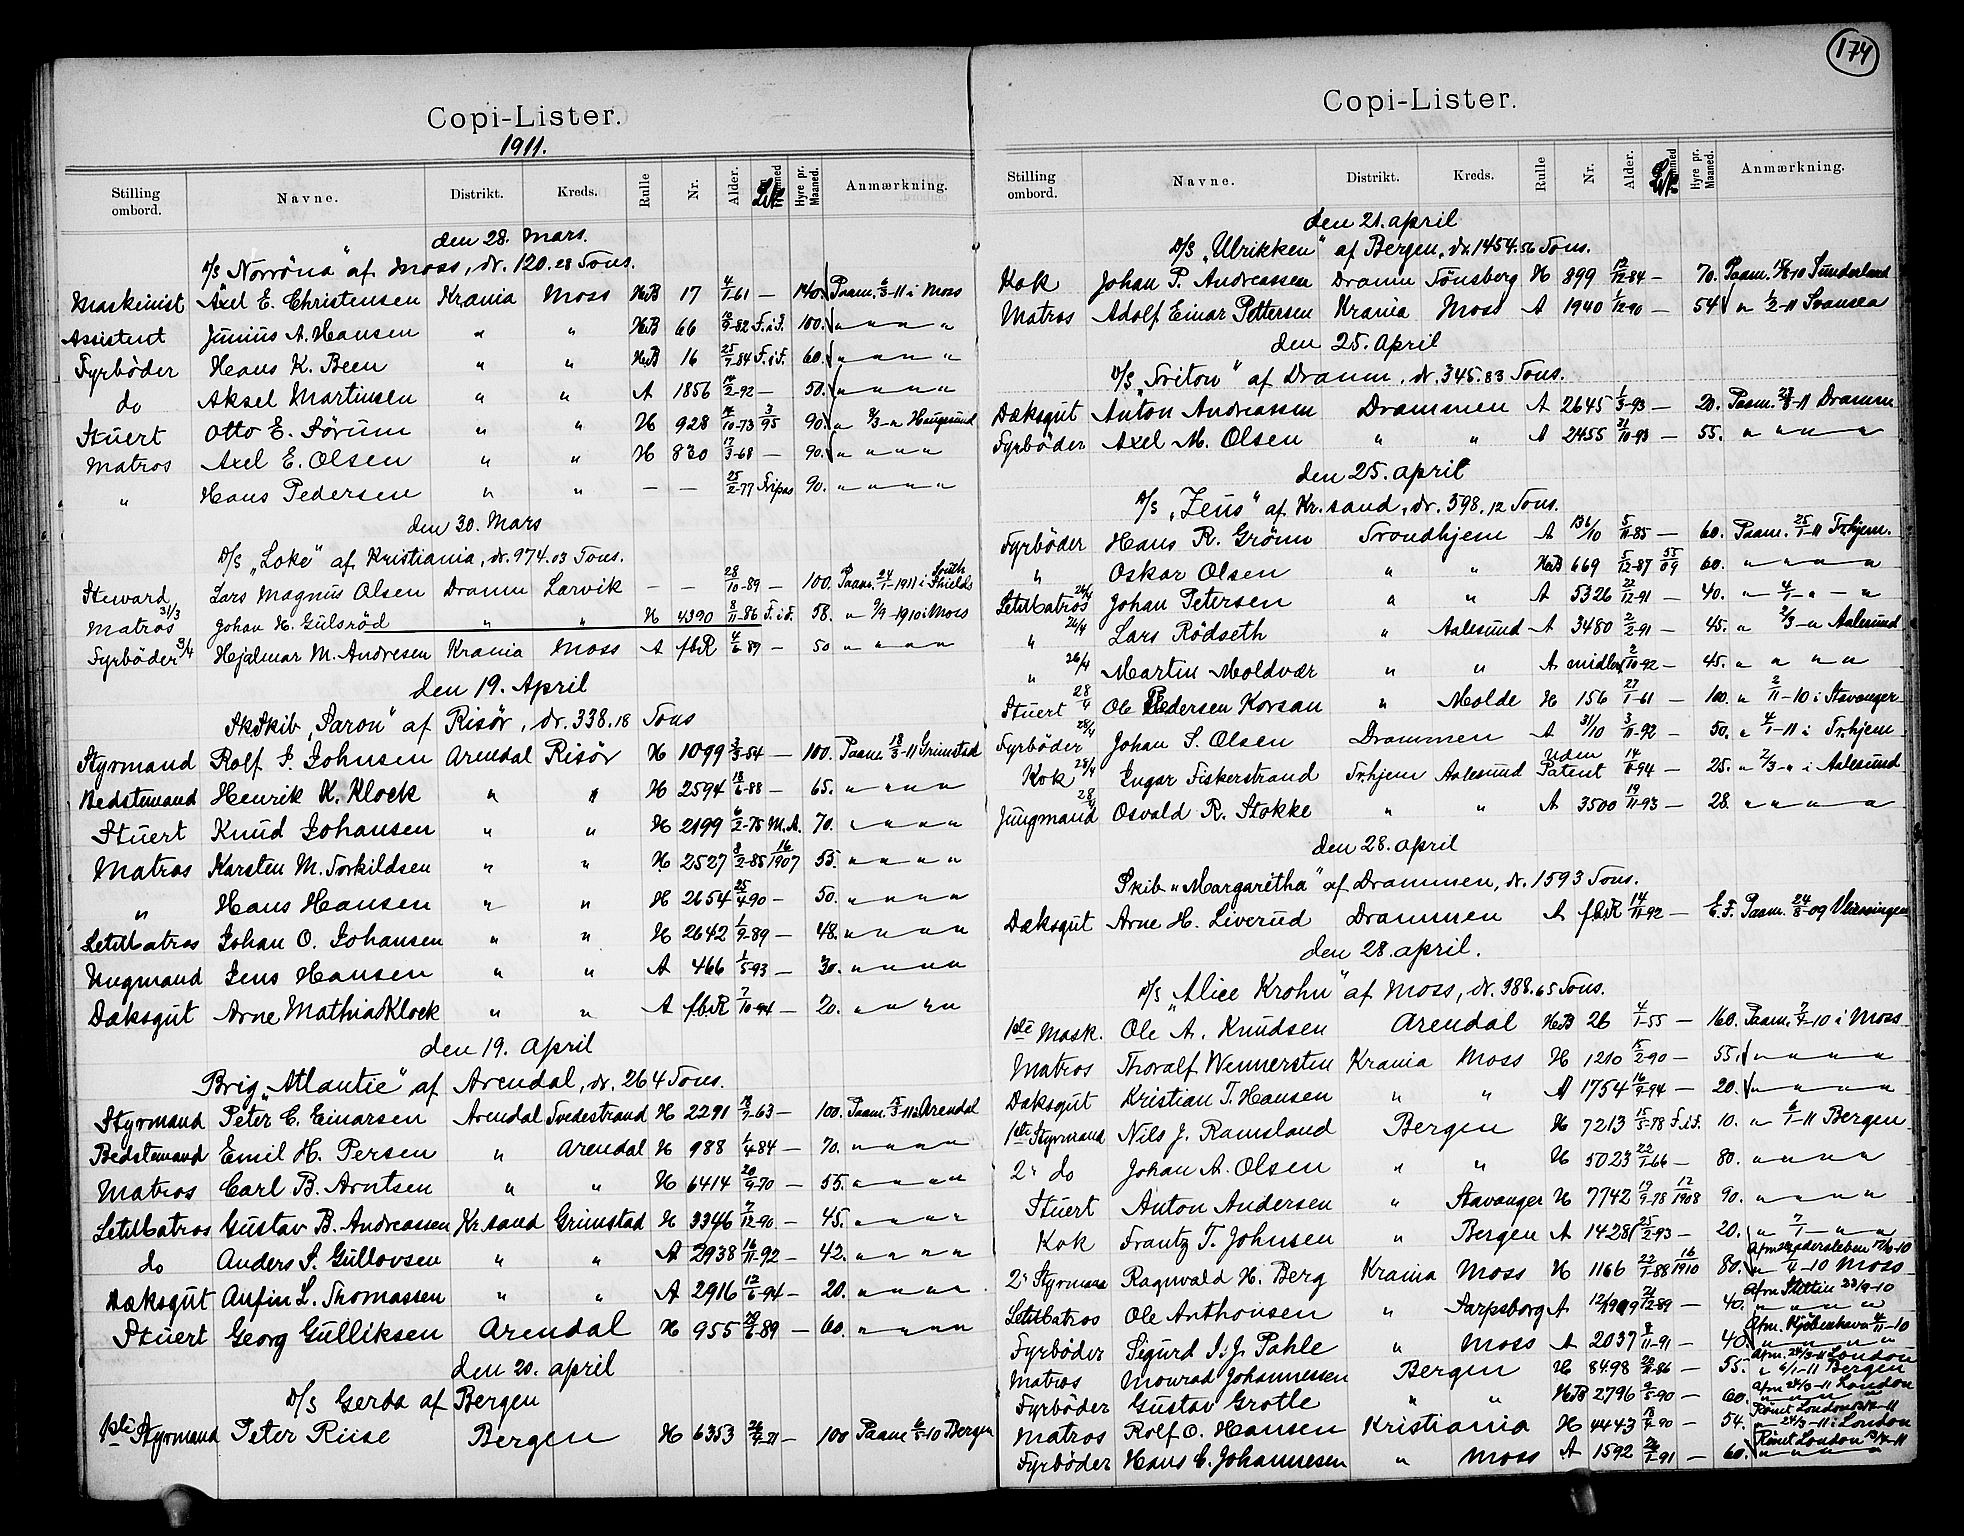 Copi-Lister.
1911.
Stilling ombord. Navne. Distrikt. Kreds. Rulle Nr. Alder. Hyre pr. Maaned. Anmærkning.
den 28. Mars.
D/S „Norröna" af Moss, dr. 120.28 Tons.
Maskinist Axel E. Christensen Krania Moss HB 17 4/1-61 — 140. Paam. 6/3-11 i Moss
Assistent Junius A. Hansen " " HB 66 12/9-82 F.i.F. 100. " " " "
Fyrböder Hans K. Been " " HB 16 25/7-84 F.i.F. 60. " " " "
do Aksel Martinsen " " A 1856 14/2-92 — 50. " " " "
Stuert Otto E. Sörum " " H 928 14/10-73 3/95 90. " 8/3-" Haugesund
Matros Axel E. Olsen " " H 830 17/3-68 — 90. " " " "
" Hans Pedersen " " — — 25/2-77 Fripas 90. " " " "
den 30. Mars
D/S „Loke" af Kristiania, dr. 974.03 Tons.
Steward Lars Magnus Olsen Dramn Larvik — — 28/10-89 — 100. Paam. 24/1-1911 i South Shields
Matros 31/3 Johan H. Gulsröd " " H 4390 8/11-86 F.i.F. 58. " 9/9-1910 i Moss
Fyrböder 3/4 Hjalmar M. Andresen Krania Moss A fbR 4/6 89 — 50 " " " "
den 19. April
Sk Skib „Saron" af Risör, dr. 338.18 Tons
Styrmand Rolf S. Johnsen Arendal Risör H 1099 3/3-54 — 100. Paam. 18/3-11 Grimstad
Bedstemand Henrik K. Klock " " H 2594 18/6-88 — 65. " " " "
Stuert Knud Johansen " " H 2199 6/2-75 M.A. 70. " " " "
Matros Karsten M. Torkildsen " " H 2527 8/2-85 16/1907 55. " " " "
" Hans Hansen " " H 2654 25/4-90 — 50. " " " "
LetMatros Johan O. Johansen " " H 2642 1/9-89 — 48. " " " "
Ungmand Jens Hansen " " A 466 1/5-93 — 30. " " " "
Dæksgut Arne Mathias Klock " " A fbR 7/10-94 — 20. " " " "
den 19. April
Brig „Atlantic" af Arendal, dr. 264 Tons.
Styrmand Peter C. Einarsen Arendal Tvedestrand H 2291 18/7-63 — 100. Paam. 15/3-11 i Arendal
Bedstemand Emil H. Persen " Arendal H 988 1/4-84 — 70. " " " "
Matros Carl B. Arntsen " " H 6414 20/9-70 — 55. " " " "
LetMatros Gustav B. Andreassen Kr.sand Grimstad H 3346 7/12-90 — 45. " " " "
do Anders S. Gullovsen " " A 2938 16/11-92 — 42. " " " "
Dæksgut Anfin L. Thomassen " " A 2916 12/6-94 — 20. " " " "
Stuert Georg Gulliksen Arendal H 955 28/6-89 — 60. " " " "
den 20. april
D/S Gerda af Bergen
1ste Styrmand Peter Riise Bergen H 6353 26/9-71 — 100 Paam 6/5-10 Bergen
174
Copi-Lister.
Stilling ombord. Navne. Distrikt. Kreds. Rulle Nr. Alder. Hyre pr. Maaned. Anmærkning.
den 21. april
D/S „Ulrikken" af Bergen, dr. 1454.56 Tons.
Kok Johan P. Andreassen Dramn Tönsberg H 899 12/12-84 — 70. Paam. 15/8-10 Sunderland
Matros Adolf Einar Pettersen Krania Moss A 1940 1/12-90 — 54 " 1/2-11 Svansea
den 25. April
D/S „Triton" af Dramn, dr. 345.83 Tons.
Dæksgut Anton Andreassen Drammen A 2645 1/3-93 — 20. Paam. 23/3-11 Dramn
Fyrböder Axel M. Olsen " " A 2455 31/10-93 — 55. " " " "
den 25. april
D/S „Zeus" af Kr.sand, dr. 598.12 Tons.
Fyrböder Hans R. Grönn Trondhjem A 136/10 5/11-85 — 60. Paam. 25/1-11 Tr.hjem.
" Oskar Olsen " " HB 669 5/12-87 55/09 60. " " " "
LetMatros 26/4 Johan Petersen " " A 5326 22/12-91 — 40. " 4/1-" - "
" 26/4 Lars Rödseth " Aalesund A 3480 2/2-91 — 45. " 2/3-" Aalesund
" 26/4 Martin Moldvær " " A midler 2/10-92 — 45. " " " "
Stuert 28/4 Ole Pedersen Korsan " Molde H 156 27/1-61 — 100. " 2/11-10 i Stavanger
Fyrböder 28/4 Johan S. Olsen Drammen A 31/10 3/11-92 — 50. " 4/1-11 i Tr.hjem
Kok 28/4 Ingar Fiskerstrand Tr.hjem Aalesund Uden Patent 14/8-94 — 25. " 2/3-" i Aalesund
Jungmand 28/4 Osvald R. Stokke " " A 3500 19/11-93 — 28. " " " "
den 28. april
Skib „Margaretha" af Drammen, dr. 1593 Tons.
Dæksgut Arne H. Liverud Drammen A fbR 14/11-92 — E.F. Paam. 24/8-09 Vlissingen
den 28. april.
D/S „Alice Krohn" af Moss, dr. 988.65 Tons.
1ste Mask. Ole A. Knudsen Arendal HB 26 4/1-55 — 160. Paam. 7/7-10 i Moss
Matros Thoralf Wennersten Krania Moss H 1210 15/2-90 — 55. " " " "
Dæksgut Kristian T. Hansen " " A 1754 16/9-94 — 20. " " " "
1ste Styrmand Nils J. Ramsland Bergen H 7213 15/5-78 F.i.F. 10. " 6/1-11 Bergen
2. do Johan A. Olsen " " H 5023 22/1-66 — 80. " " " "
Stuert Anton Andersen " Stavanger H 7742 19/9-78 12/1908 90. " " " "
Kok Frantz T. Johnsen " Bergen A 14281 25/2-93 — 20. " 7/1 " "
2. Styrmand Ragnvald H. Berg Krania Moss H 1166 22/1-88 16/1910 80. Afm Hadersleben 17/10-10 " 7/4-10 Moss
LetMatros Ole Anthonsen " Sarpsborg A 12/1909 21/12-89 — 40. Afm Stettin 23/9-10 " " " "
Fyrböder Sigurd S. J. Pahle " Moss A 2037 8/11-91 — 40. Afm. Kjöbenhavn 4/11-10 " " " "
Matros Monrad Johannessen Bergen H 8498 20/11-86 — 55. Afm. 24/3-11 London " 6/1-11 Bergen
Fyrböder Gustav Grotle " " HB 2796 9/5-90 — 60. Afm 24/3-11 London " " " "
Matros Rolf O. Hansen Kristiania H 4443 18/9-90 — 54. Römt London " 24/3-11 i London
Fyrböder Hans C. Johannesen " Moss A 1592 26/1-91 — 60. Römt London " " " "